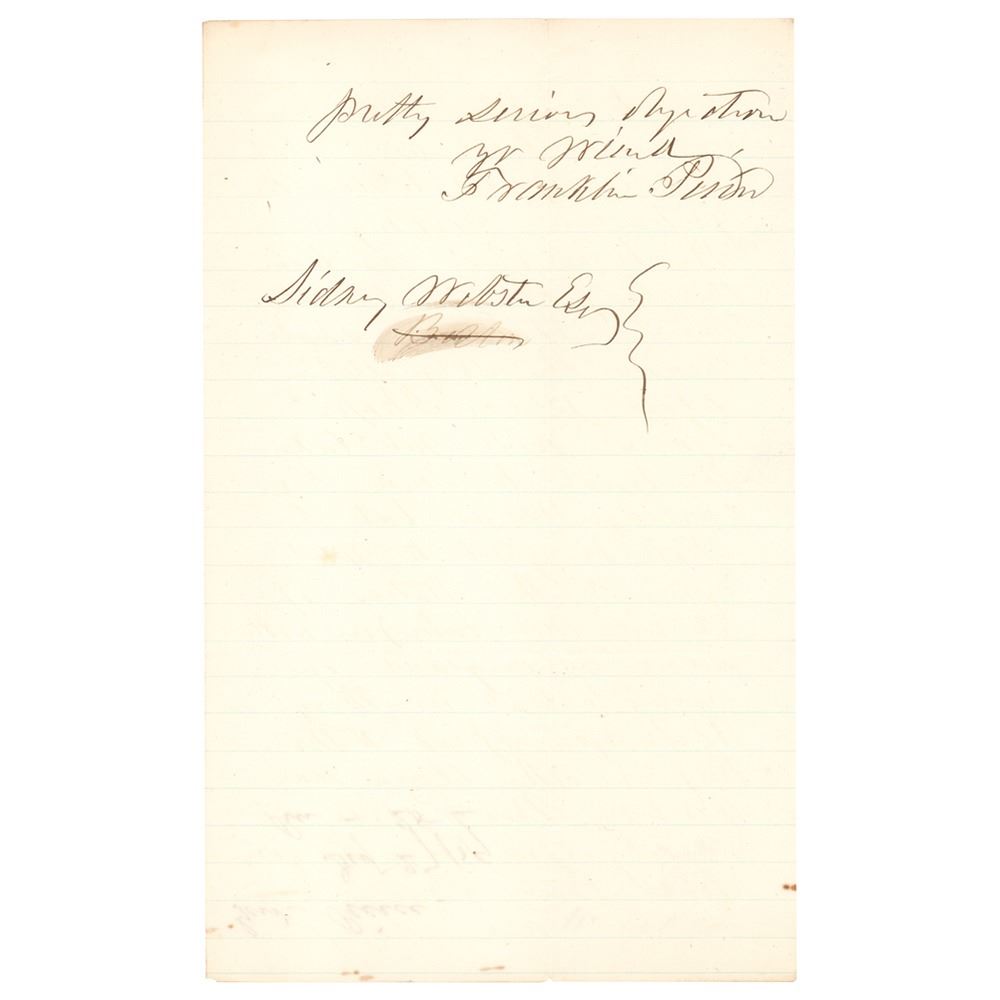 pretty serious objection
yr friend
Franklin Pierce
Sidney Webster Esq
Boston